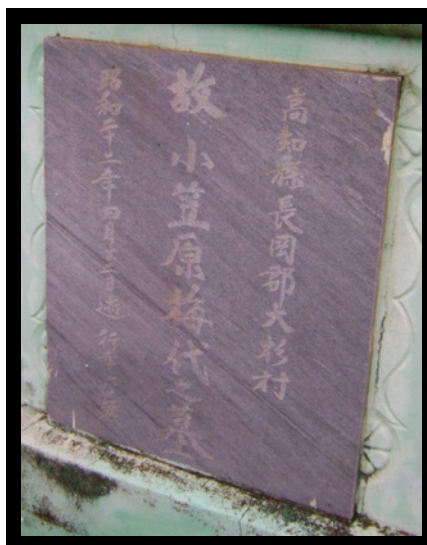 高知縣長岡郡大杉村
故小笠原梅代之墓
昭和十二年四月十二日逝 行年